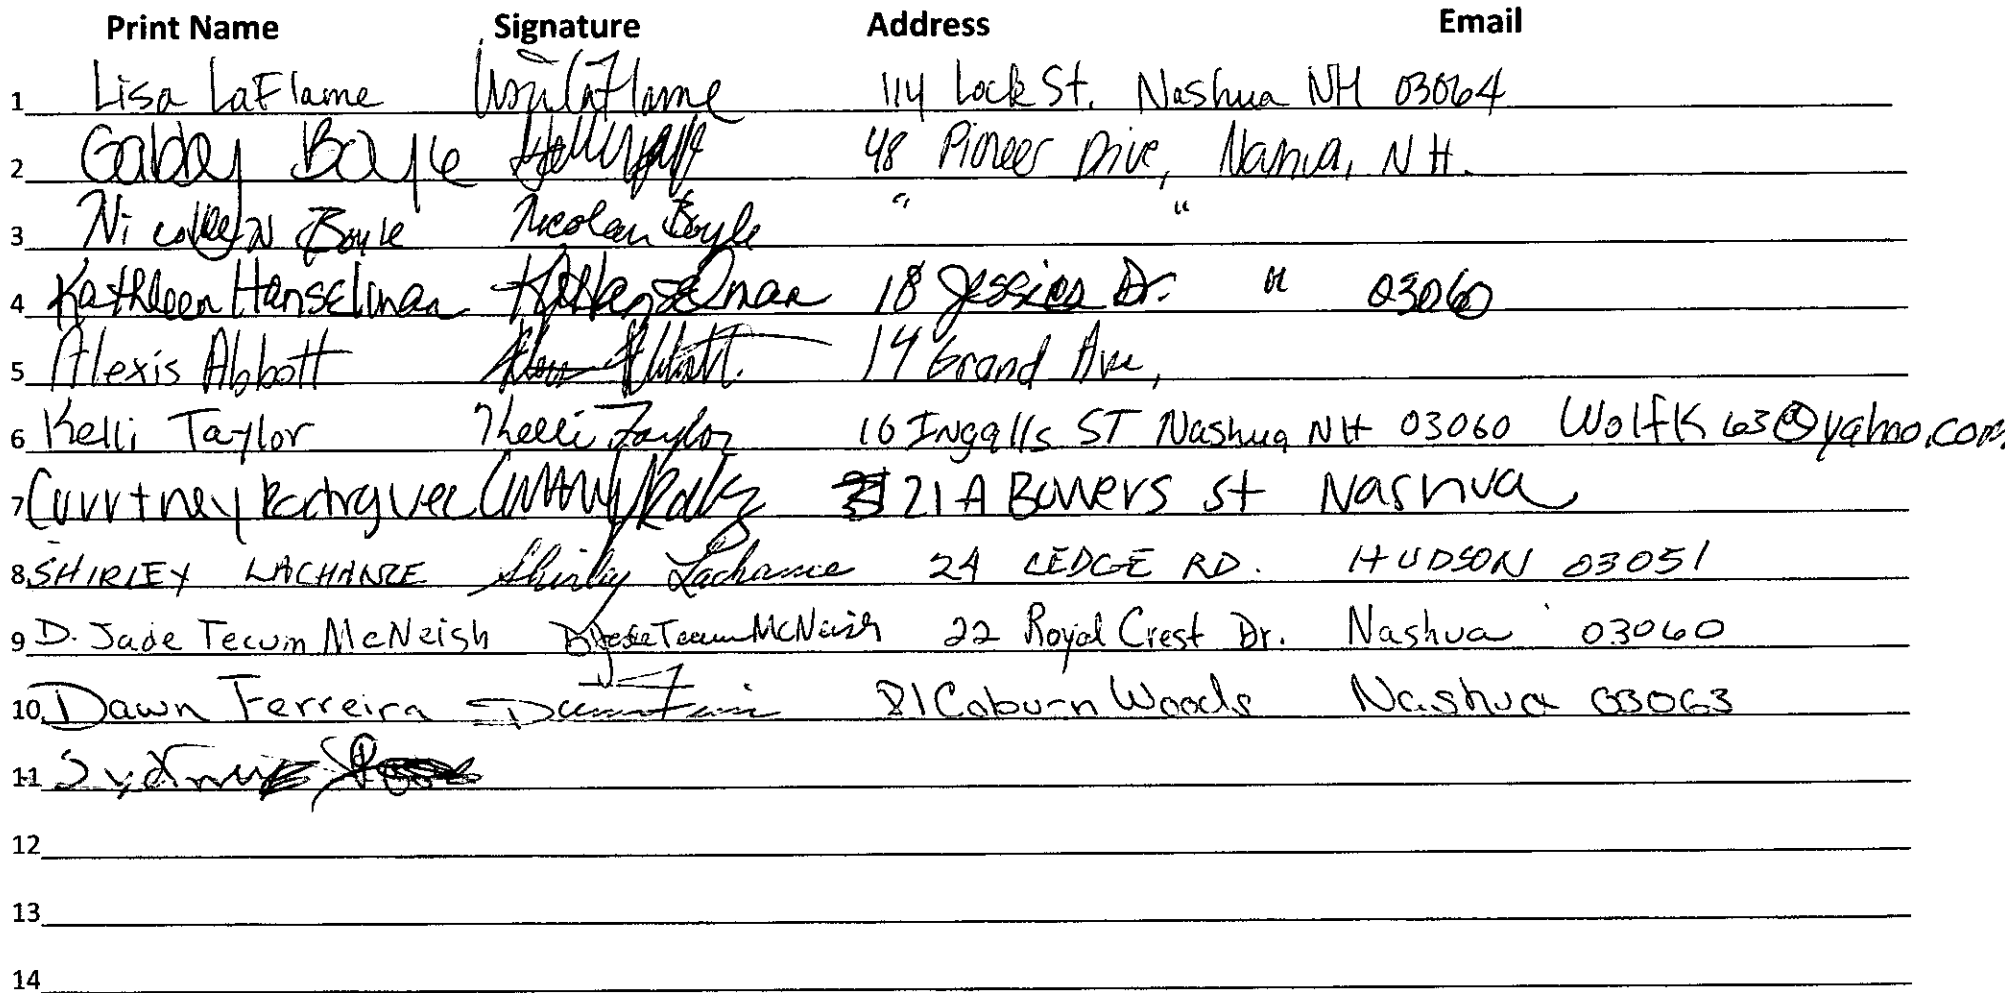 Print Name Signature Address Email
1 Lisa LaFlame Lisa LaFlame 114 Lock St. Nashua NH 03064
2 Gabby Boyle 48 Pioneer Drive, Nashua, N H.
3 Boyle Boyle " "
4 Kathleen Hanselman K Hanselman 18 Jessica Dr. " 03060
5 Alexis Abbott Abbott 14 Grand Ave,
6 Kelli Taylor Kelli Taylor 16 Ingalls ST Nashua NH 03060 WolfK63@yahoo.com
7 Courtney 21 A Bowers St Nashua
8 SHIRLEY LACHANCE Shirley Lachance 24 LEDGE RD. HUDSON 03051
9 D. Jade Tecum McNeish D Jade Tecum McNeish 22 Royal Crest Dr. Nashua 03060
10 Dawn Ferreira 81 Coburn Woods Nashua 03063
11
12
13
14